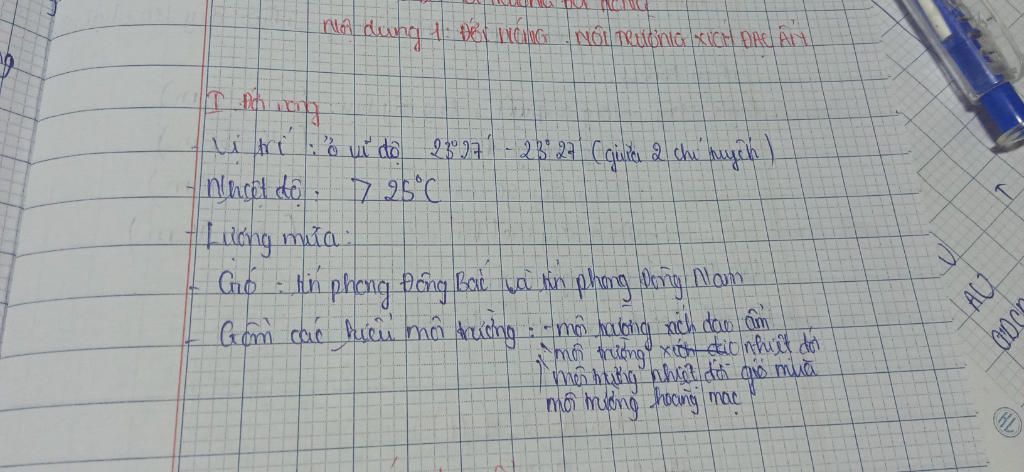 Nội dung 1: Đới nóng. Môi trường xích đạo ẩm
I Đới nóng
- Vị trí : ở vĩ độ 23°27' - 23°27' (giữa 2 chí tuyến)
- Nhiệt độ : > 25°C
- Lượng mưa:
- Gió : tín phong Đông Bắc và tín phong Đông Nam
- Gồm các kiểu môi trường : - môi trường xích đạo ẩm
môi trường nhiệt đới
môi trường nhiệt đới gió mùa
môi trường hoang mạc